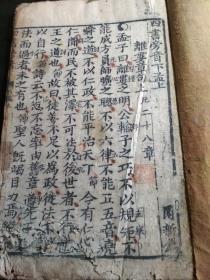 四書旁音下孟上
離婁章句上凡二十八章
孟子曰離婁之明公輸子之巧不以規矩不
能成方員師曠之聰不以六律不能正五音堯
舜之道不以仁政不能平治天下今有仁心
仁聞而民不被其澤不可法於後世者不行先
王之道也故曰徒善不足以爲政徒法不
以自行詩云不愆不忘率由舊章遵先王
法而過者未之有也聖人既竭目力焉